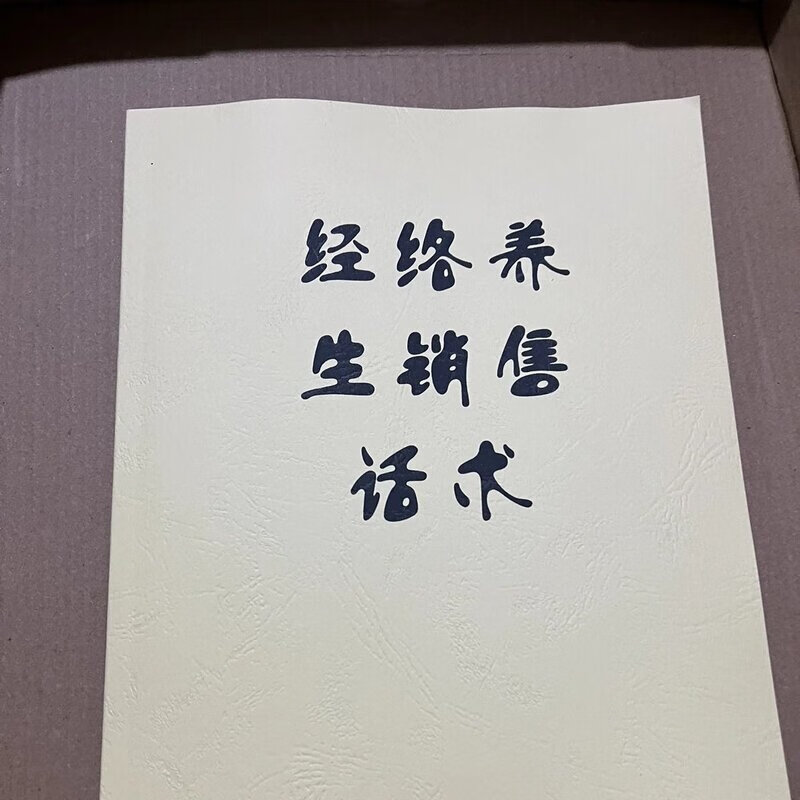 经络养
生销售
话术